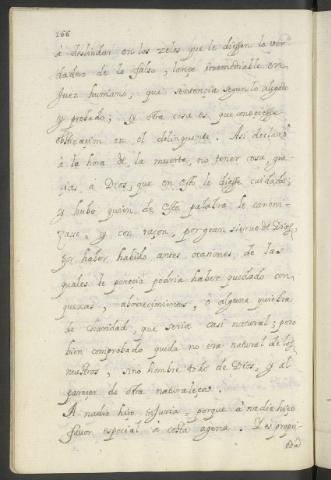 266
à deslindar en los zelos que le diessen la ver
dadero de lo falso; lance irremediable en
Juez humano, que sentencia segun lo alegado
y probado; y otra cosa es que conociesse
obstinacion en el delinquente. Asi declarò
à la hora de la muerte, no tener cosa, gra
cias à Dios, que en esto le diesse cuidado;
y hubo quien de esta palabra le
y con razon, por gran siervo de Dios,
por haber habido antes ocasiones, de las
quales le parecia podria haber quedado con
quexas, aborrecimientos, ò alguna quiebra
de caridad, que seria casi natural; pero
bien comprobado queda no era natural de los
nuestros, sino hombre todo de Dios, y al
parecer de otra naturaleza.
A nadie hizo injuria, porque à nadie hizo
favor especial à costa agena. Y es propri
edad